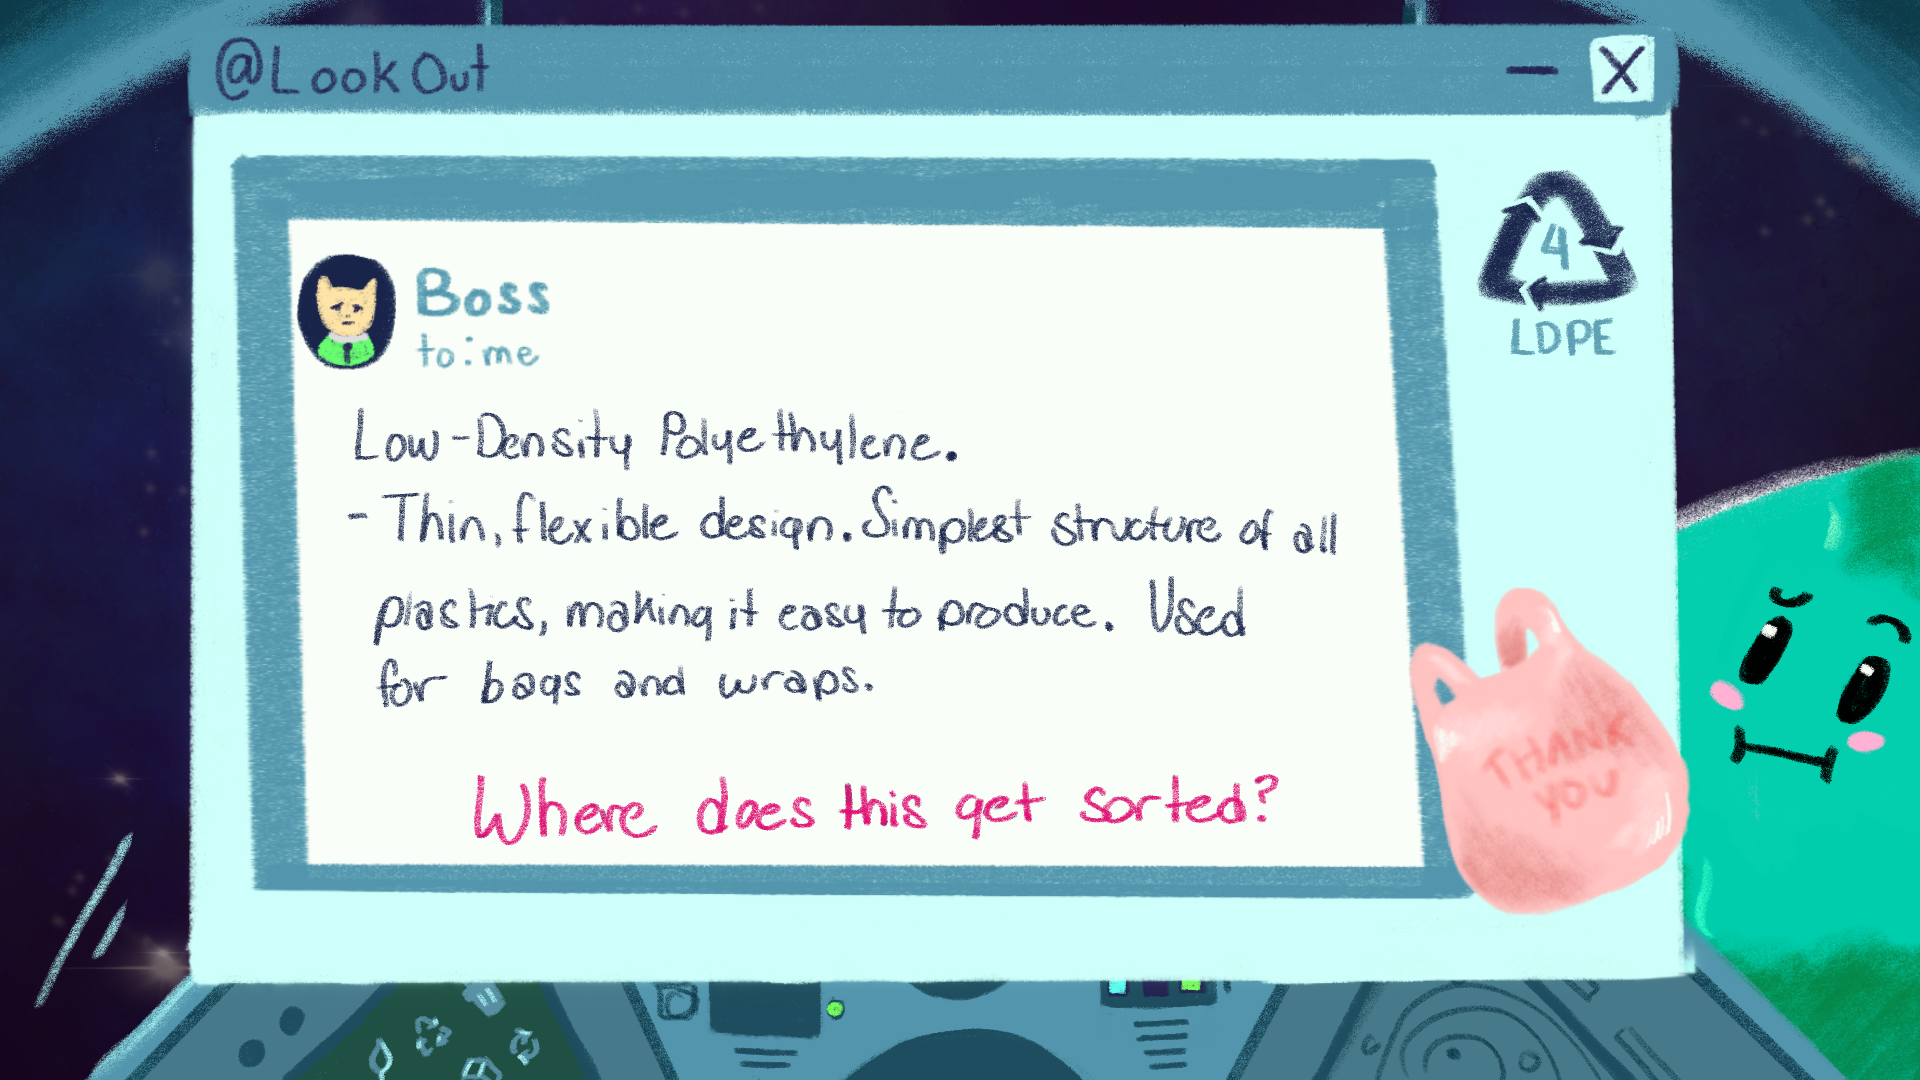 @LookOut
X
4
LDPE
Boss
to:me
Low-Density Polyethylene.
- Thin, flexible design. Simplest structure of all
plastics, making it easy to produce. Used
for bags and wraps.
Where does this get sorted?
THANK
YOU